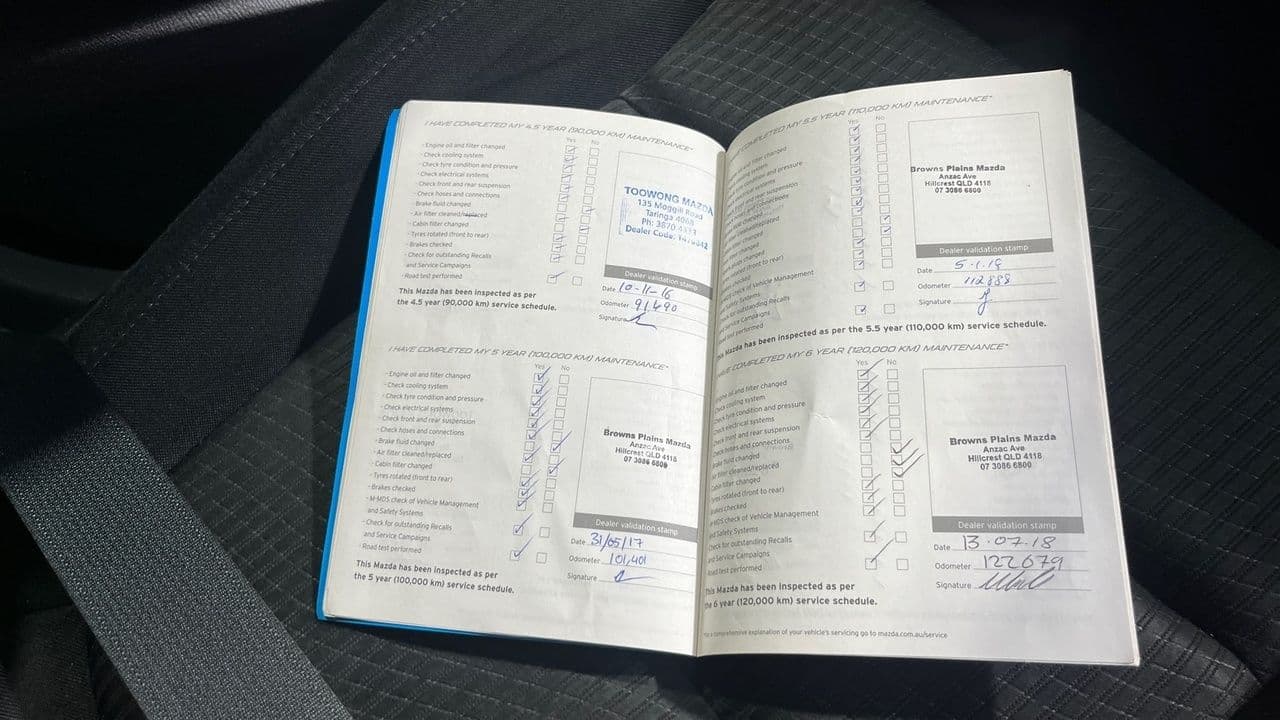 I HAVE COMPLETED MY 4.5 YEAR (90,000 KM) MAINTENANCE*
Yes No
- Engine oil and filter changed
- Check cooling system
- Check tyre condition and pressure
- Check electrical systems
- Check front and rear suspension
- Check hoses and connections
- Brake fluid changed
- Air filter cleaned/replaced
- Cabin filter changed
- Tyres rotated (front to rear)
- Brakes checked
- Check for outstanding Recalls
and Service Campaigns
- Road test performed
This Mazda has been inspected as per
the 4.5 year (90,000 km) service schedule.
TOOWONG MAZDA
135 Moggill Road
Taringa 4068
Ph: 3870
Dealer Code:
Dealer validation stamp
Date 10-11-16
Odometer 91,490
Signature
I HAVE COMPLETED MY 5 YEAR (100,000 KM) MAINTENANCE*
Yes No
- Engine oil and filter changed
- Check cooling system
- Check tyre condition and pressure
- Check electrical systems
- Check front and rear suspension
- Check hoses and connections
- Brake fluid changed
- Air filter cleaned/replaced
- Cabin filter changed
- Tyres rotated (front to rear)
- Brakes checked
- M-MDS check of Vehicle Management
and Safety Systems
- Check for outstanding Recalls
and Service Campaigns
- Road test performed
This Mazda has been inspected as per
the 5 year (100,000 km) service schedule.
Browns Plains Mazda
Anzac Ave
Hillcrest QLD 4118
07 3086 6800
Dealer validation stamp
Date 31/05/17
Odometer 101,401
Signature
COMPLETED MY 5.5 YEAR (110,000 KM) MAINTENANCE*
Yes No
and filter changed
system
condition and pressure
systems
and rear suspension
and connections
changed
cleaned/replaced
changed
(front to rear)
checked
check of Vehicle Management
Safety Systems
outstanding Recalls
and Service Campaigns
Road test performed
This Mazda has been inspected as per the 5.5 year (110,000 km) service schedule.
Browns Plains Mazda
Anzac Ave
Hillcrest QLD 4118
07 3086 6800
Dealer validation stamp
Date 5.1.18
Odometer 112888
Signature
HAVE COMPLETED MY 6 YEAR (120,000 KM) MAINTENANCE*
Yes No
Engine oil and filter changed
Check cooling system
Check tyre condition and pressure
Check electrical systems
Check front and rear suspension
Check hoses and connections
Brake fluid changed
Air filter cleaned/replaced
Cabin filter changed
Tyres rotated (front to rear)
Brakes checked
M-MDS check of Vehicle Management
and Safety Systems
Check for outstanding Recalls
and Service Campaigns
Road test performed
This Mazda has been inspected as per
the 6 year (120,000 km) service schedule.
Browns Plains Mazda
Anzac Ave
Hillcrest QLD 4118
07 3086 6800
Dealer validation stamp
Date 13.07.18
Odometer 122679
Signature
comprehensive explanation of your vehicle's servicing go to mazda.com.au/service